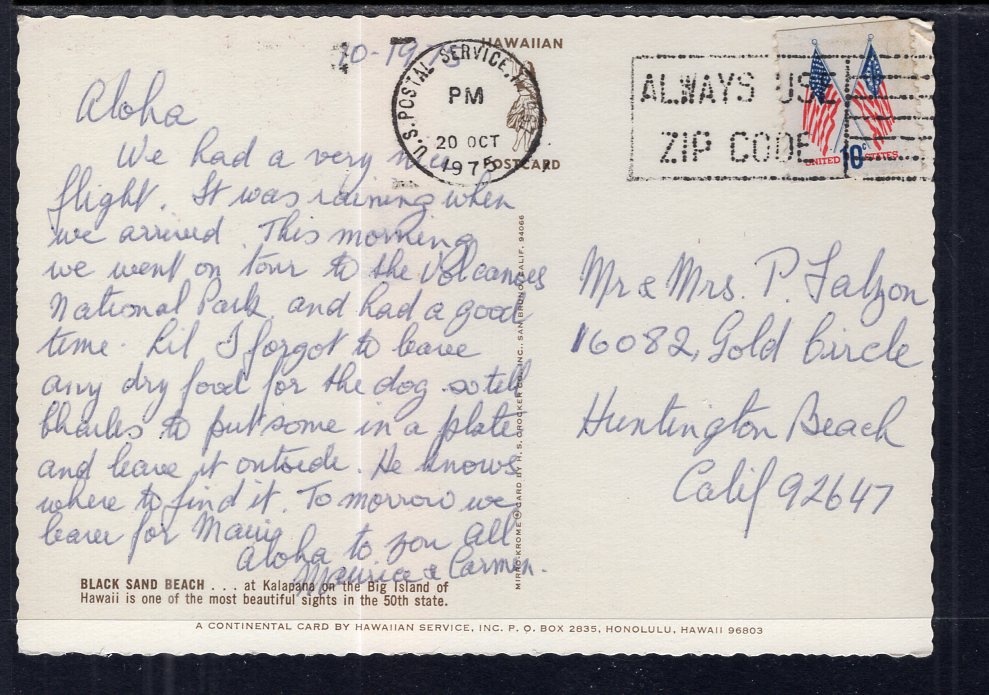 10-19-75
Aloha
We had a very nice
flight. It was raining when
we arrived. This morning
we went on tour to the Volcanoes
National Park and had a good
time. Lil I forgot to leave
any dry food for the dog so tell
Charles to put some in a plate
and leave it outside. He knows
where to find it. To morrow we
leave for Maui
Aloha to you All
Maurice & Carmen.
BLACK SAND BEACH . . . at Kalapana on the Big Island of
Hawaii is one of the most beautiful sights in the 50th state.
A CONTINENTAL CARD BY HAWAIIAN SERVICE, INC. P. O. BOX 2835, HONOLULU, HAWAII 96803
HAWAIIAN
POSTCARD
U.S. POSTAL SERVICE,
PM
20 OCT
1975
ALWAYS USE
ZIP CODE
UNITED 10c STATES
MIRRO-KROME ® CARD BY H. S. CROCKER CO., INC., SAN BRUNO, CALIF. 94066
Mr & Mrs. P. Falzon
16082, Gold Circle
Huntington Beach
Calif 92647